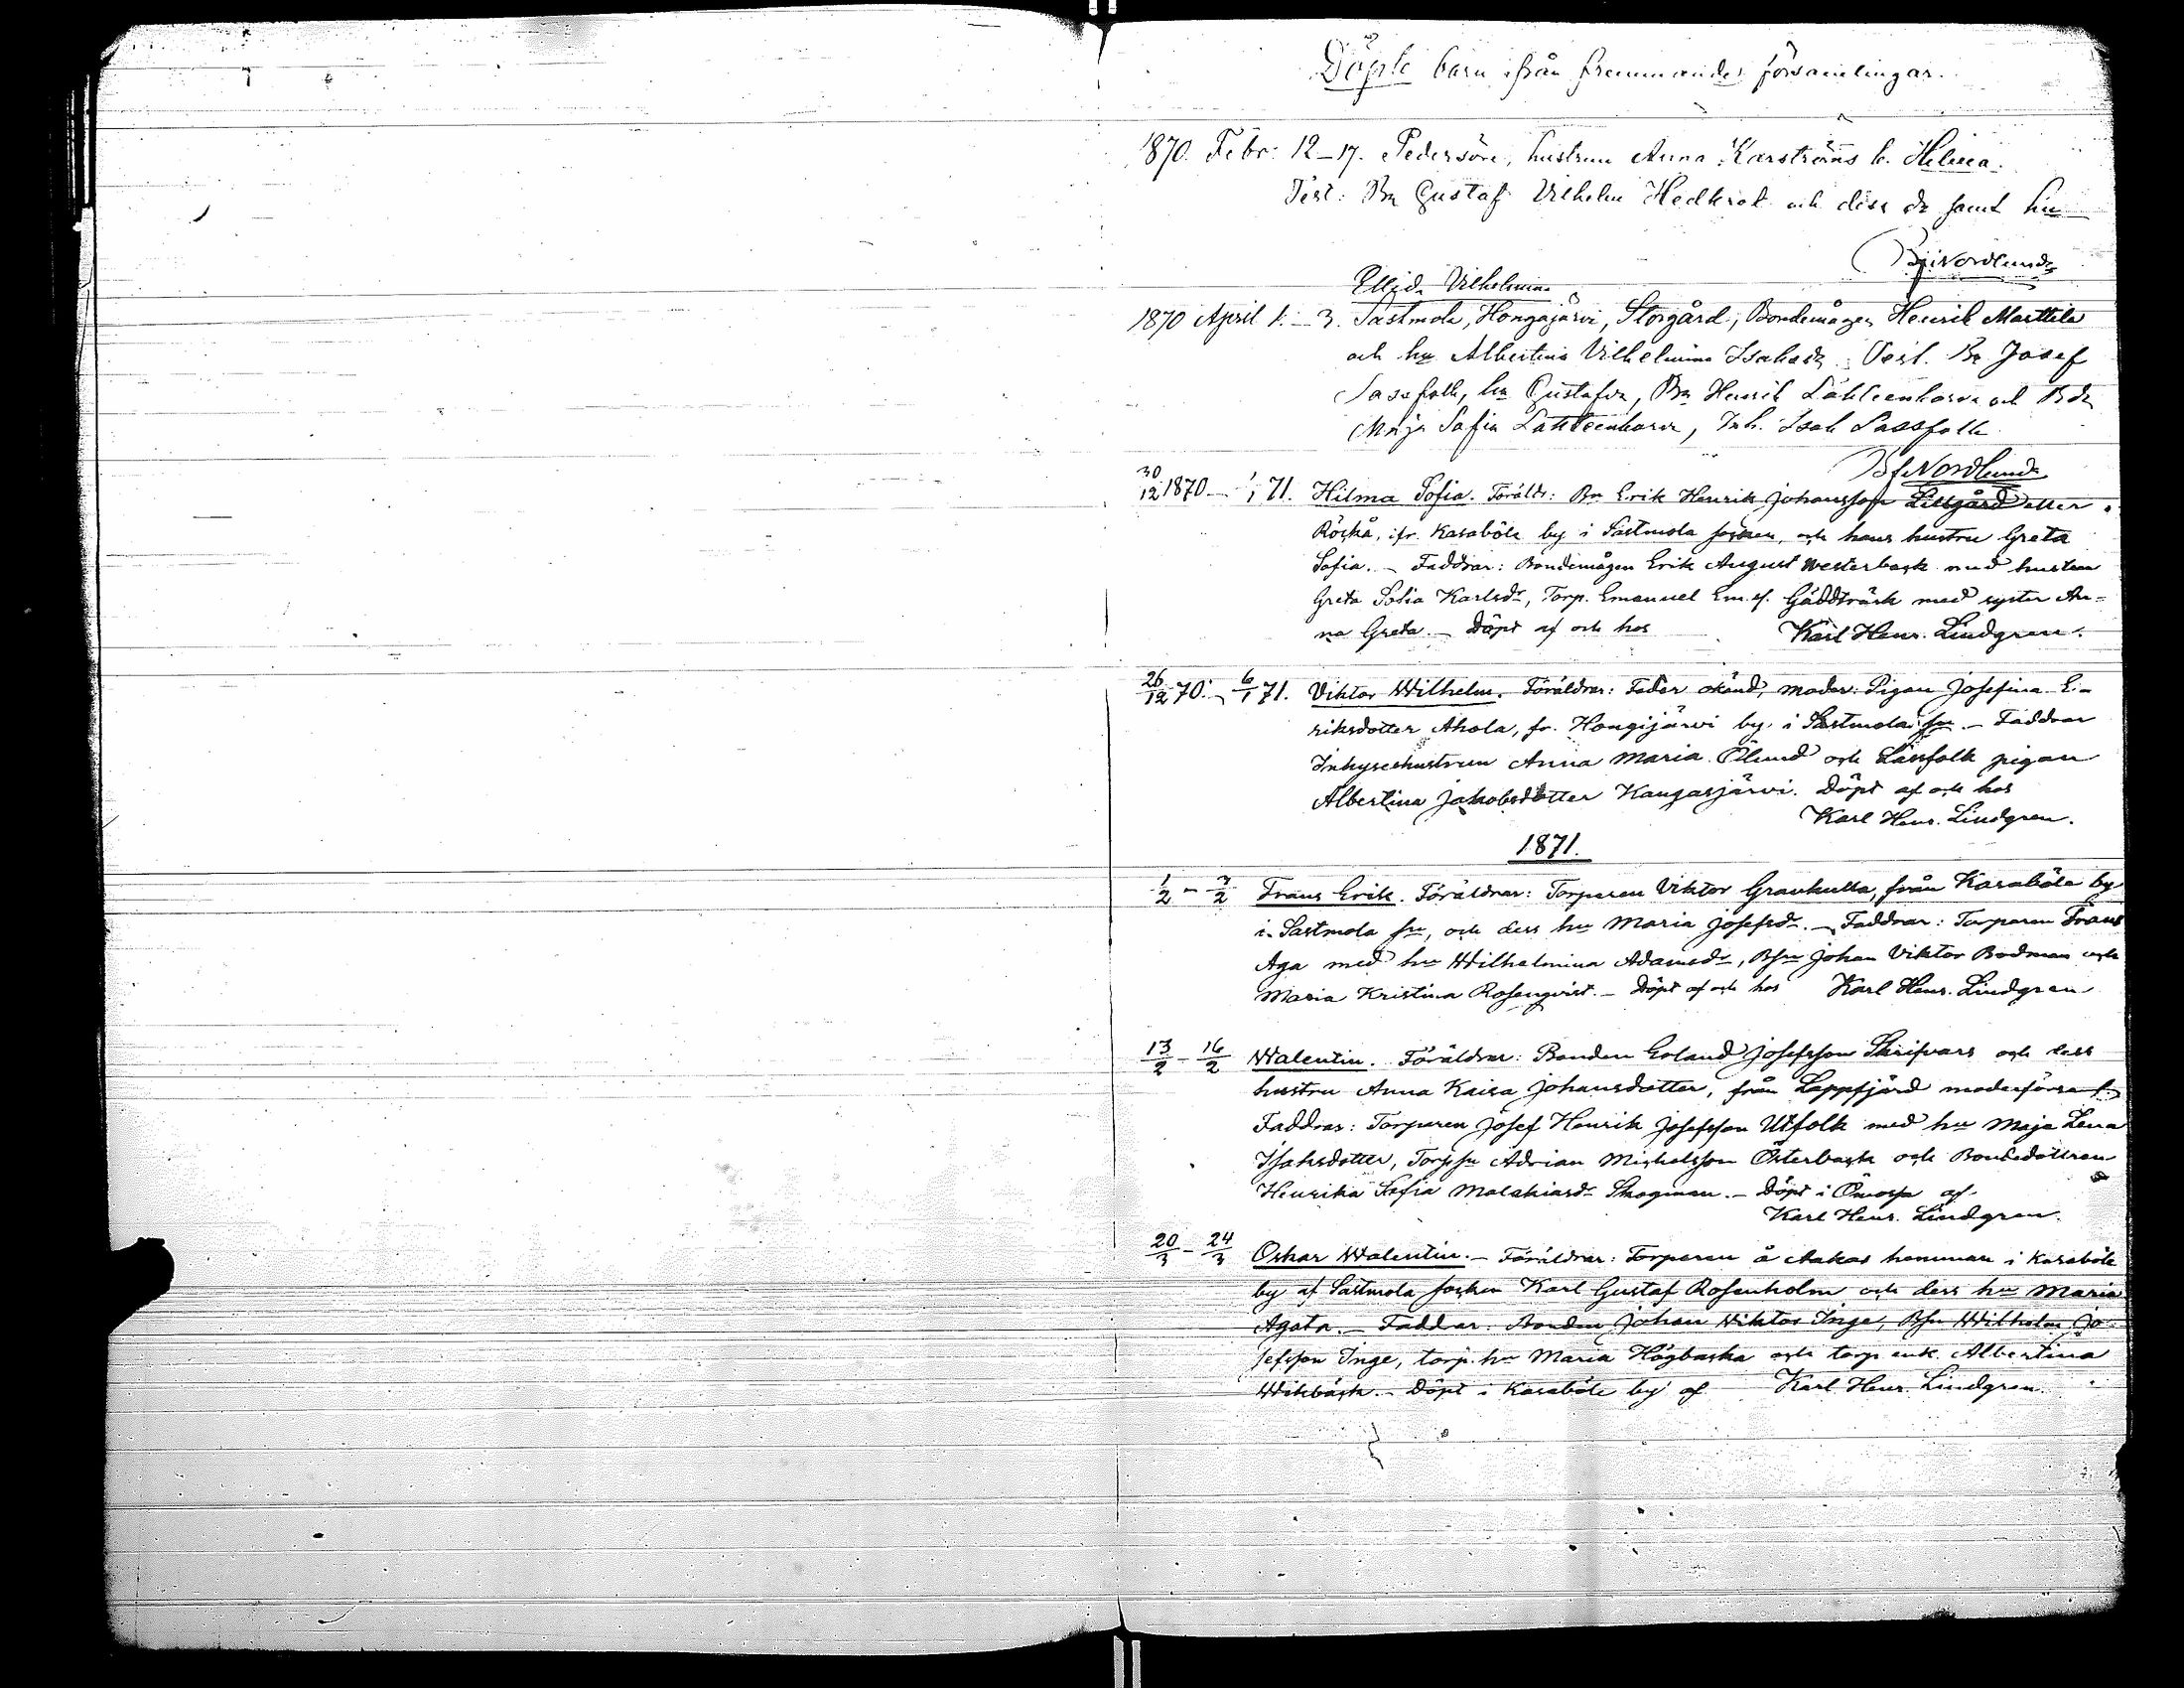 Döpte barn ifrån fremmande församlingar.
1870. Febr: 12–17. Pedersöre, hustrun Anna Karströms b. Helena.
Test: Bn Gustaf Vilhelm Hedkrok och dess dr samt hu
Nordlund
Ellida Vilhelmina
1870 April 1.–3. Sastmola, Hongajärvi, Storgård, Bondemågen Henrik Marttila
och hu Albertina Vilhelmina Isaksdr. Test. Bn Josef
Sassfolk, hu Gustafva, Bn Henrik Lähteenkorva och Bdr
Maja Sofia Lähteenkorva, Inh. Isak Sassfolk
Nordlund
30/12 1870 – 1/1 71. Hilma Sofia. Föräldr: Bn Erik Henrik Johansson Lillgård eller
Röskå, ifr. Kasaböle by i Sastmola socken, och hans hustru Greta
Sofia. – Faddrar: Bondemågen Erik August Westerback med hustru
Greta Sofia Karlsdr, Torp. Emanuel Em.sf. Gäddträsk med syster An-
na Greta. – Döpt af och hos Karl Henr. Lindgren.
26/12 70. – 6/1 71. Viktor Wilhelm. Föräldrar: Fader okänd, moder: Pigan Josefina E-
riksdotter Ahola, fr. Hongijärvi by i Sastmola sn. – Faddrar
Inhyseshustrun Anna Maria Ölund och Sassfolk pigan
Albertina Jakobsdotter Kangasjärvi. Döpt af och hos
Karl Henr. Lindgren.
1871.
1/2 – 7/2 Frans Erik. Föräldrar: Torparen Viktor Grankulla, från Kasaböle by
i Sastmola sn, och dess hu Maria Josefsdr. – Faddrar: Torparen Frans
Aga med hu Wilhelmina Adamsdr, Bsn Johan Viktor Bodman och
Maria Kristina Rosenqvist. – Döpt af och hos Karl Henr. Lindgren
13/2 – 16/2 Walentin. Föräldrar: Bonden Erland Josefsson Skrifvars och dess
hustru Anna Kaisa Johansdotter, från Lappfjärd moderförsaml.
Faddrar: Torparen Josef Henrik Josefsson Utfolk med hu Maja Lena
Isaksdotter, Torpsn Adrian Mickelsson Österback och Bondedottren
Henrika Sofia Malakiasdr Skogman. – Döpt i Ömossa af
Karl Henr. Lindgren.
20/3 – 24/3 Oskar Walentin. – Föräldrar: Torparen å Aakas hemman i Kasaböle
by af Sastmola socken Karl Gustaf Rosenholm och dess hu Maria
Agata. – Faddrar: Bonden Johan Wiktor Inge, Bsn Wilhelm Jo-
sefsson Inge, torp. hu Maria Högbacka och torp. enk. Albertina
Wikbäck. – Döpt i Kasaböle by af Karl Henr. Lindgren.